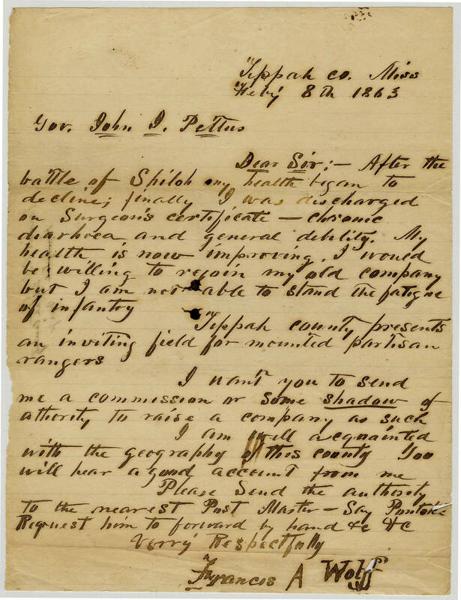 Tippah co. Miss
Feby 8th 1863
Gov. John J. Pettus
Dear Sir:- After the
battle of Shiloh my health began to
decline; finally I was discharged
on Surgeon's certificate - chronic
diarhoea and general debility. My
health is now improving. I would
be willing to rejoin my old company
but I am not able to stand the fatogue
of infantry
Tippah county presents
an inviting field for mounted partisan
rangers
I want you to send
me a commission or some shadow of
athority to raise a company as such
I am well acquainted
with the geography of this county You
will hear a good account from me
Please Send the authority
to the nearest Post Master - Say Pontotoc
Request him to forward by hand &c &C
Verry Respectfully
Francis A Wolff